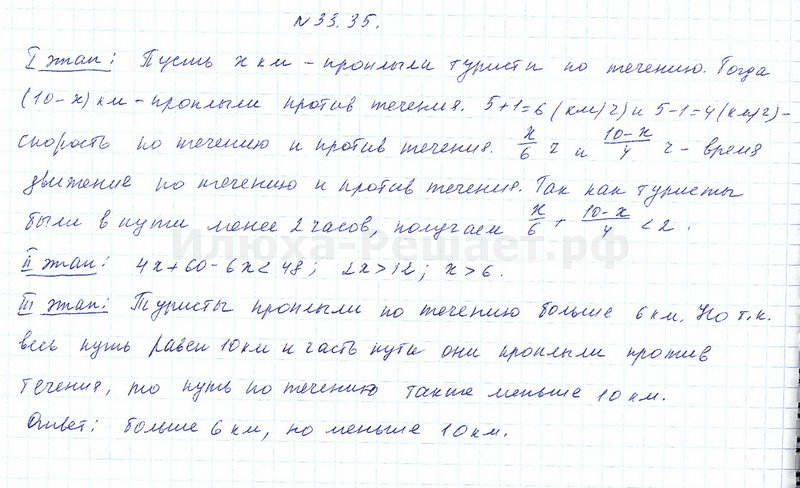 N 33.35.
I этап: Пусть x км – проплыли туристы по течению. Тогда
(10-x) км – проплыли против течения. 5+1=6 (км/ч) и 5-1=4 (км/ч) –
скорость по течению и против течения. x/6 ч и (10-x)/4 ч – время
движение по течению и против течения. Так как туристы
были в пути менее 2 часов, получаем x/6 + (10-x)/4 < 2.
Илюха-Решает.рф
II этап: 4x+60-6x<48; 2x>12; x>6.
III этап: Туристы проплыли по течению больше 6 км. Но т.к.
весь путь равен 10 км и часть пути они проплыли против
течения, то путь по течению также меньше 10 км.
Ответ: больше 6 км, но меньше 10 км.